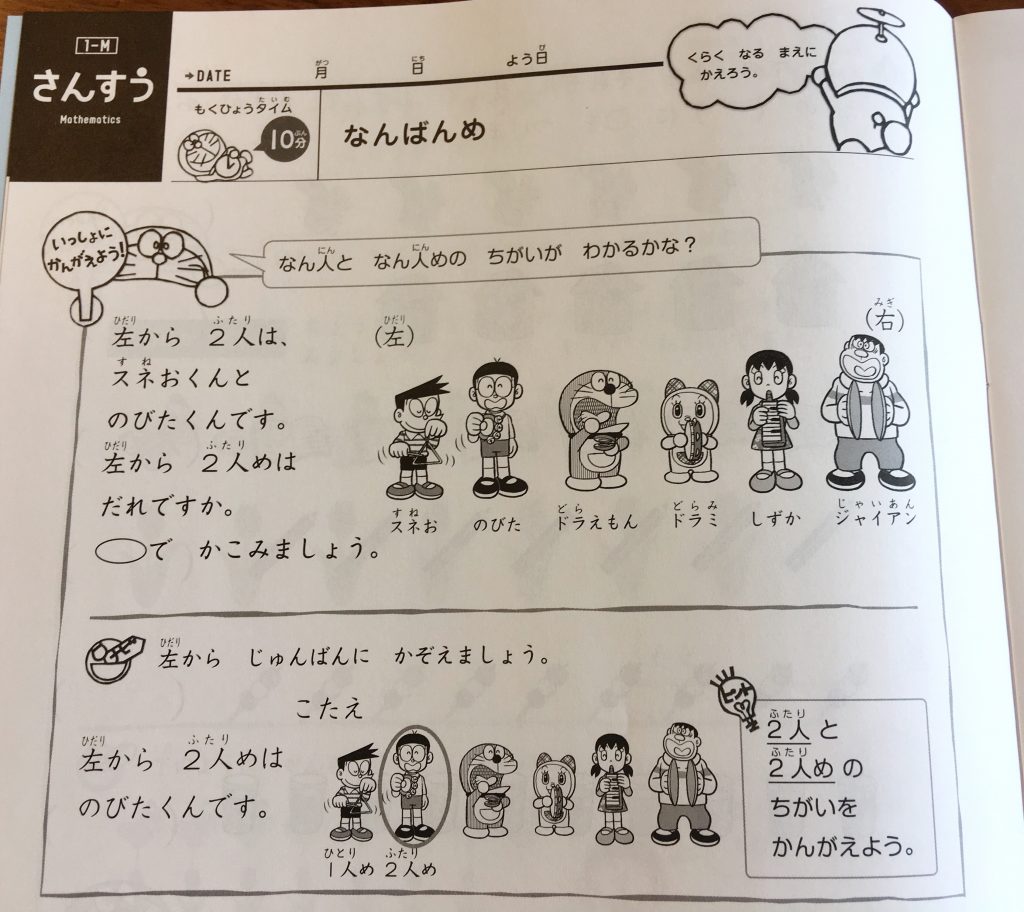 1-M
さんすう
Mathematics
➔DATE 月 日 よう日
もくひょうタイム
10分
なんばんめ
くらく なる まえに
かえろう。
いっしょに
かんがえよう!
なん人と なん人めの ちがいが わかるかな?
左から 2人は、
スネおくんと
のびたくんです。
左から 2人めは
だれですか。
◯で かこみましょう。
(左)
(右)
スネお のびた ドラえもん ドラミ しずか ジャイアン
左から じゅんばんに かぞえましょう。
こたえ
左から 2人めは
のびたくんです。
1人め 2人め
ヒント
2人と
2人めの
ちがいを
かんがえよう。